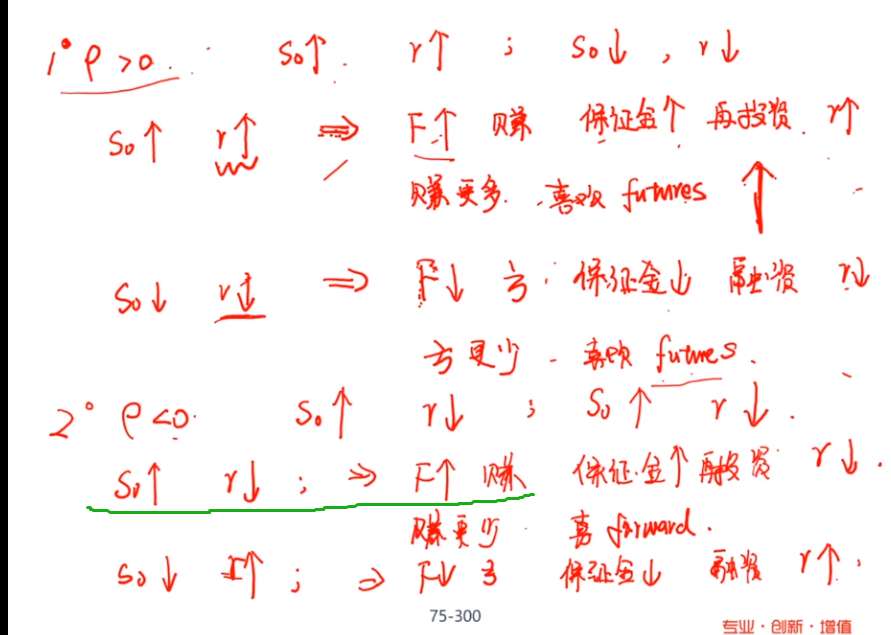 1° ρ>0. S₀↑. r↑ ; S₀↓, r↓
S₀↑ r↑ ⇒ F↑ 赚 保证金↑ 再投资. r↑
赚更多. 喜欢 futures ↑
S₀↓ r↓ ⇒ F↓ 亏. 保证金↓ 融资 r↓
亏更少 - 喜欢 futures.
2° ρ<0. S₀↑ r↓ ; S₀↑ r↓.
S₀↑ r↓ ; ⇒ F↑ 赚 保证金↑ 再投资 r↓.
赚更少. 喜 forward.
S₀↓ r↑ ; ⇒ F↓ 亏 保证金↓ 融资 r↑.
75-300
专业·创新·增值